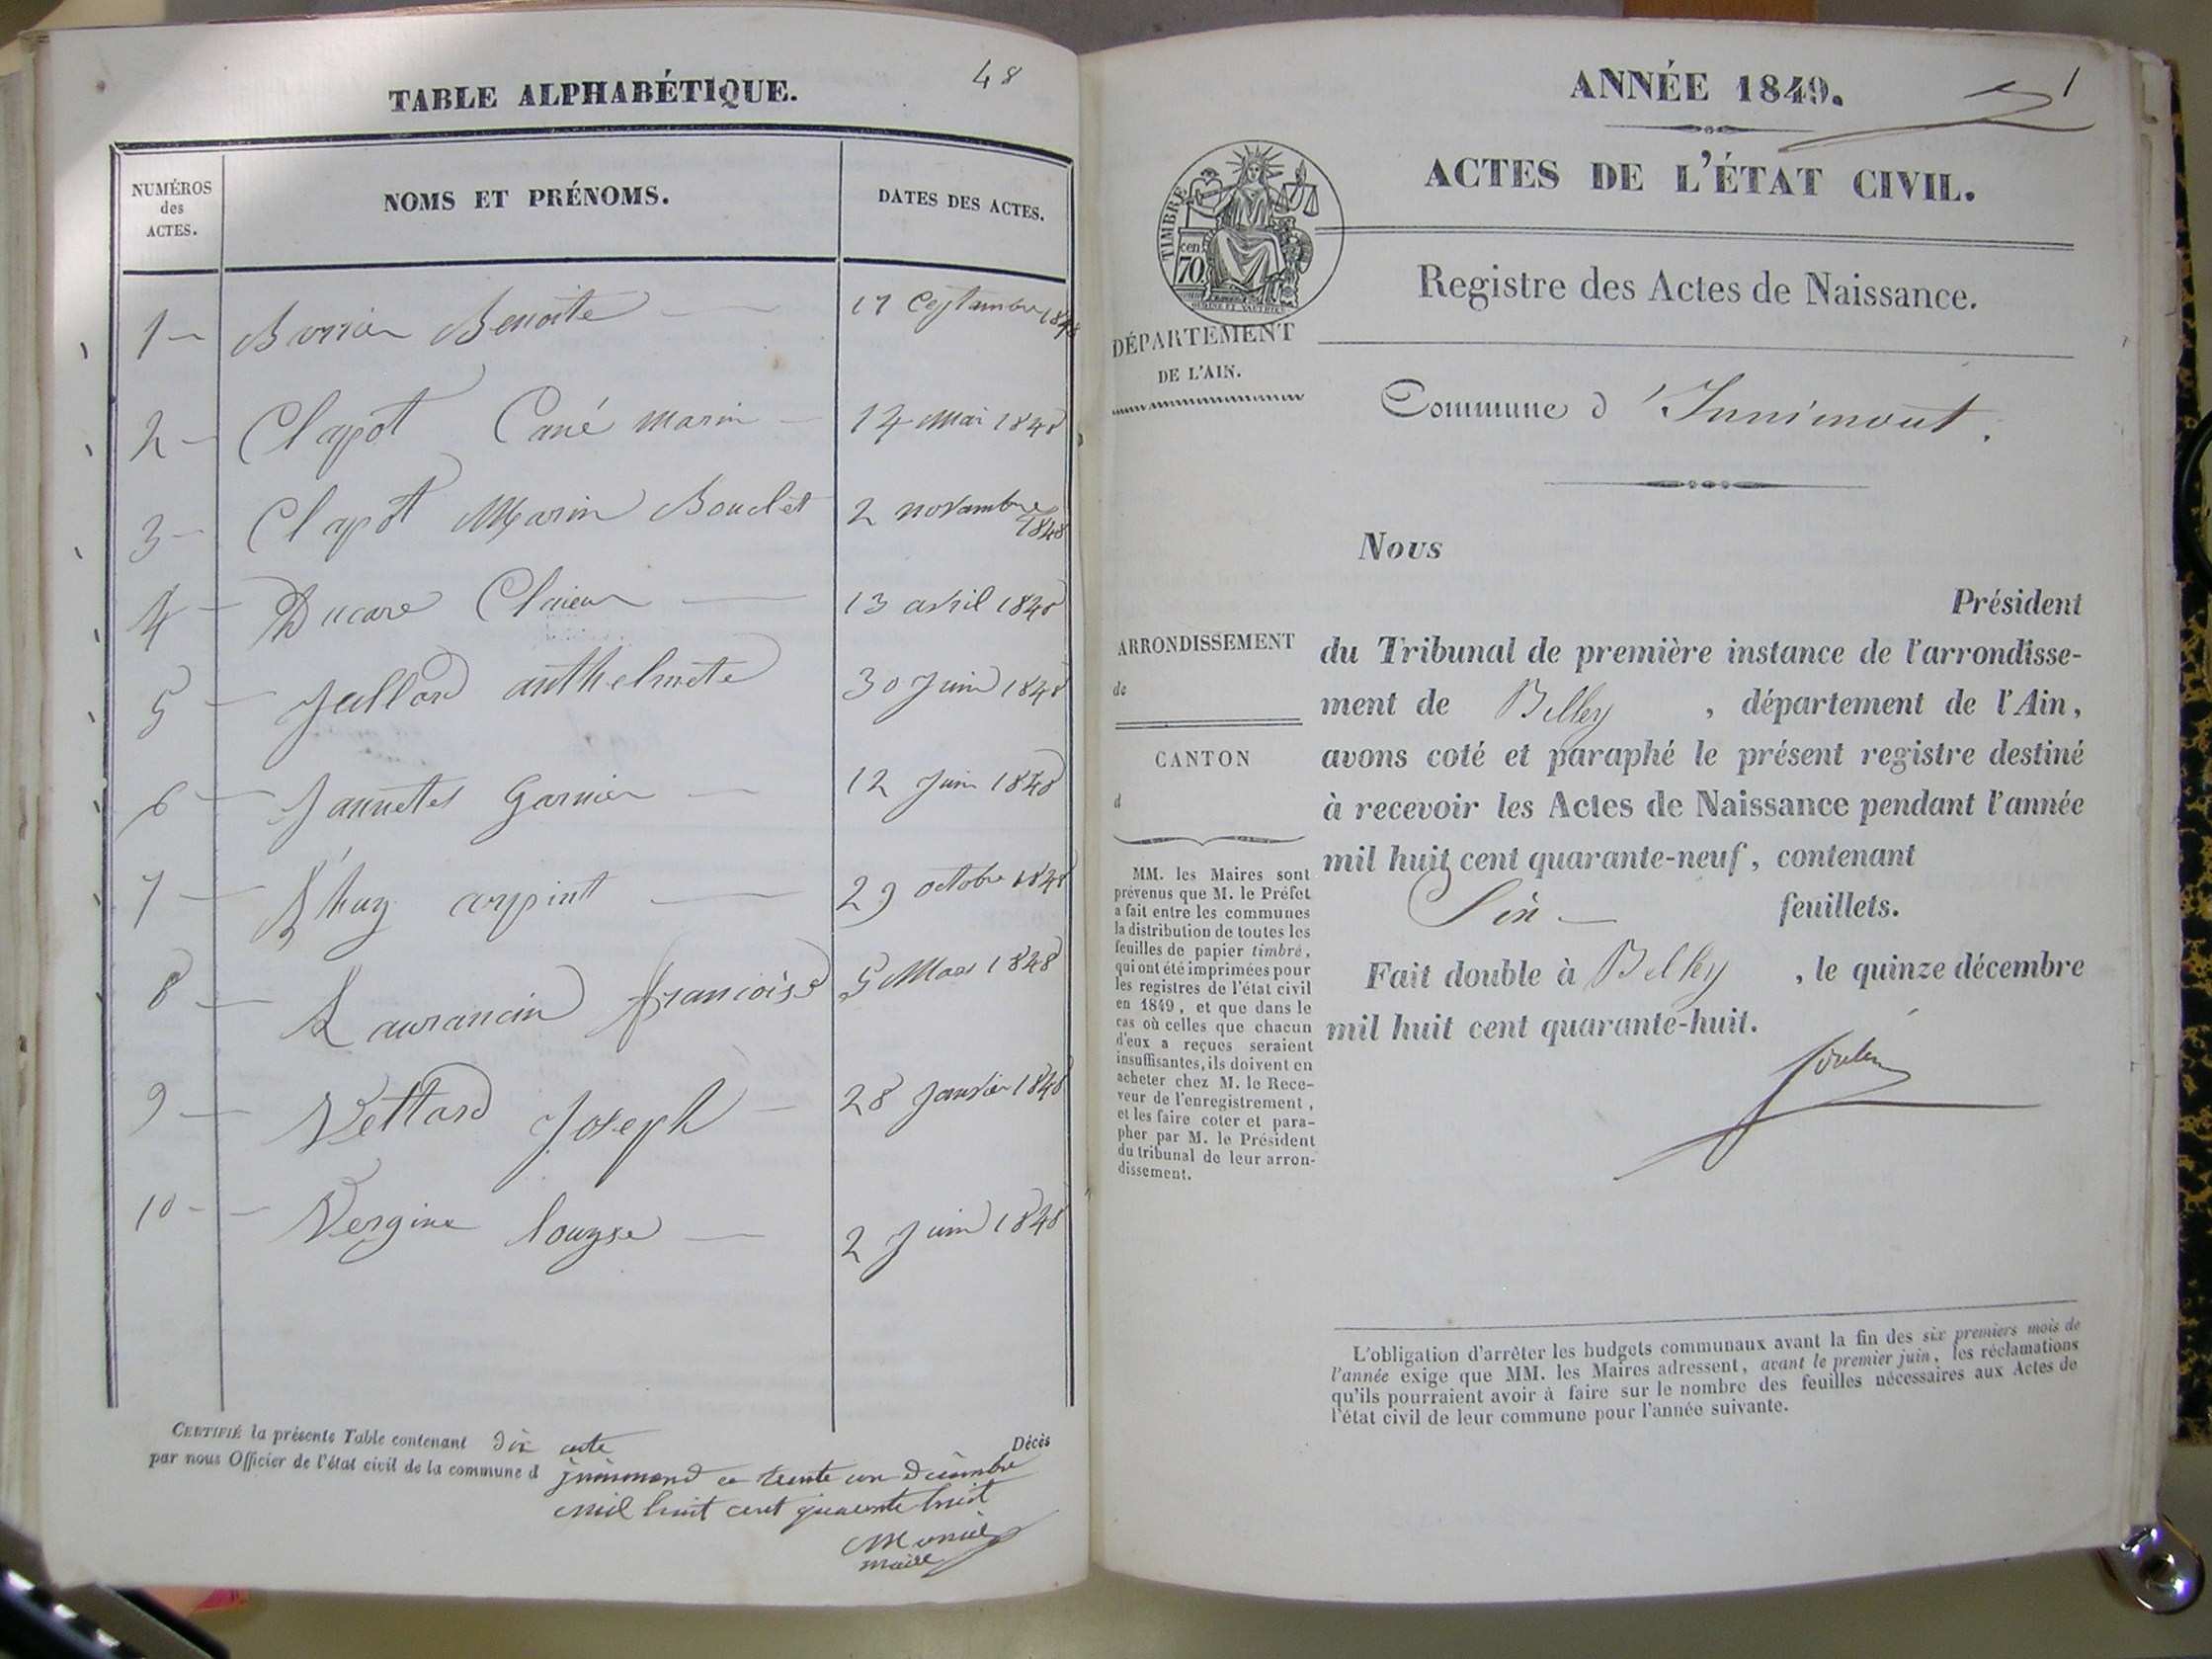 48
TABLE ALPHABÉTIQUE.
NUMÉROS
des
ACTES.
NOMS ET PRÉNOMS.
DATES DES ACTES.
1 — Benoite — 17 Ceptambre 1848
2 — Clapot marin — 14 Mai 1848
3 — Clapot Marin 2 novambre 1848
4 — Ducare — 13 avril 1848
5 — Jallard anthelmete 30 Juin 1848
6 — Jannetes Garnier — 12 Juin 1848
7 — — 29 octobre 1848
8 — Laurancin françoise 5 Mars 1848
9 — Vettard Joseph — 28 Janvier 1848
10 — Vergine louyse — 2 Juin 1848
CERTIFIÉ la présente Table contenant dix acte Décès
par nous Officier de l'état civil de la commune d jnnimond ce trente un decembre
mil huit cent quarante huit
maire
1
ANNÉE 1849.
ACTES DE L'ÉTAT CIVIL.
TIMBRE
70 cen
Registre des Actes de Naissance.
DÉPARTEMENT
DE L'AIN.
Commune d'Innimont.
Nous
Président
ARRONDISSEMENT
de
CANTON
d
du Tribunal de première instance de l'arrondisse-
ment de Belley, département de l'Ain,
avons coté et paraphé le présent registre destiné
à recevoir les Actes de Naissance pendant l'année
mil huit cent quarante-neuf, contenant
Six — feuillets.
Fait double à Belley, le quinze décembre
mil huit cent quarante-huit.
MM. les Maires sont
prévenus que M. le Préfet
a fait entre les communes
la distribution de toutes les
feuilles de papier timbré,
qui ont été imprimées pour
les registres de l'état civil
en 1849, et que dans le
cas où celles que chacun
d'eux a reçues seraient
insuffisantes, ils doivent en
acheter chez M. le Rece-
veur de l'enregistrement,
et les faire coter et para-
pher par M. le Président
du tribunal de leur arron-
dissement.
L'obligation d'arrêter les budgets communaux avant la fin des six premiers mois de
l'année exige que MM. les Maires adressent, avant le premier juin, les réclamations
qu'ils pourraient avoir à faire sur le nombre des feuilles nécessaires aux Actes de
l'état civil de leur commune pour l'année suivante.